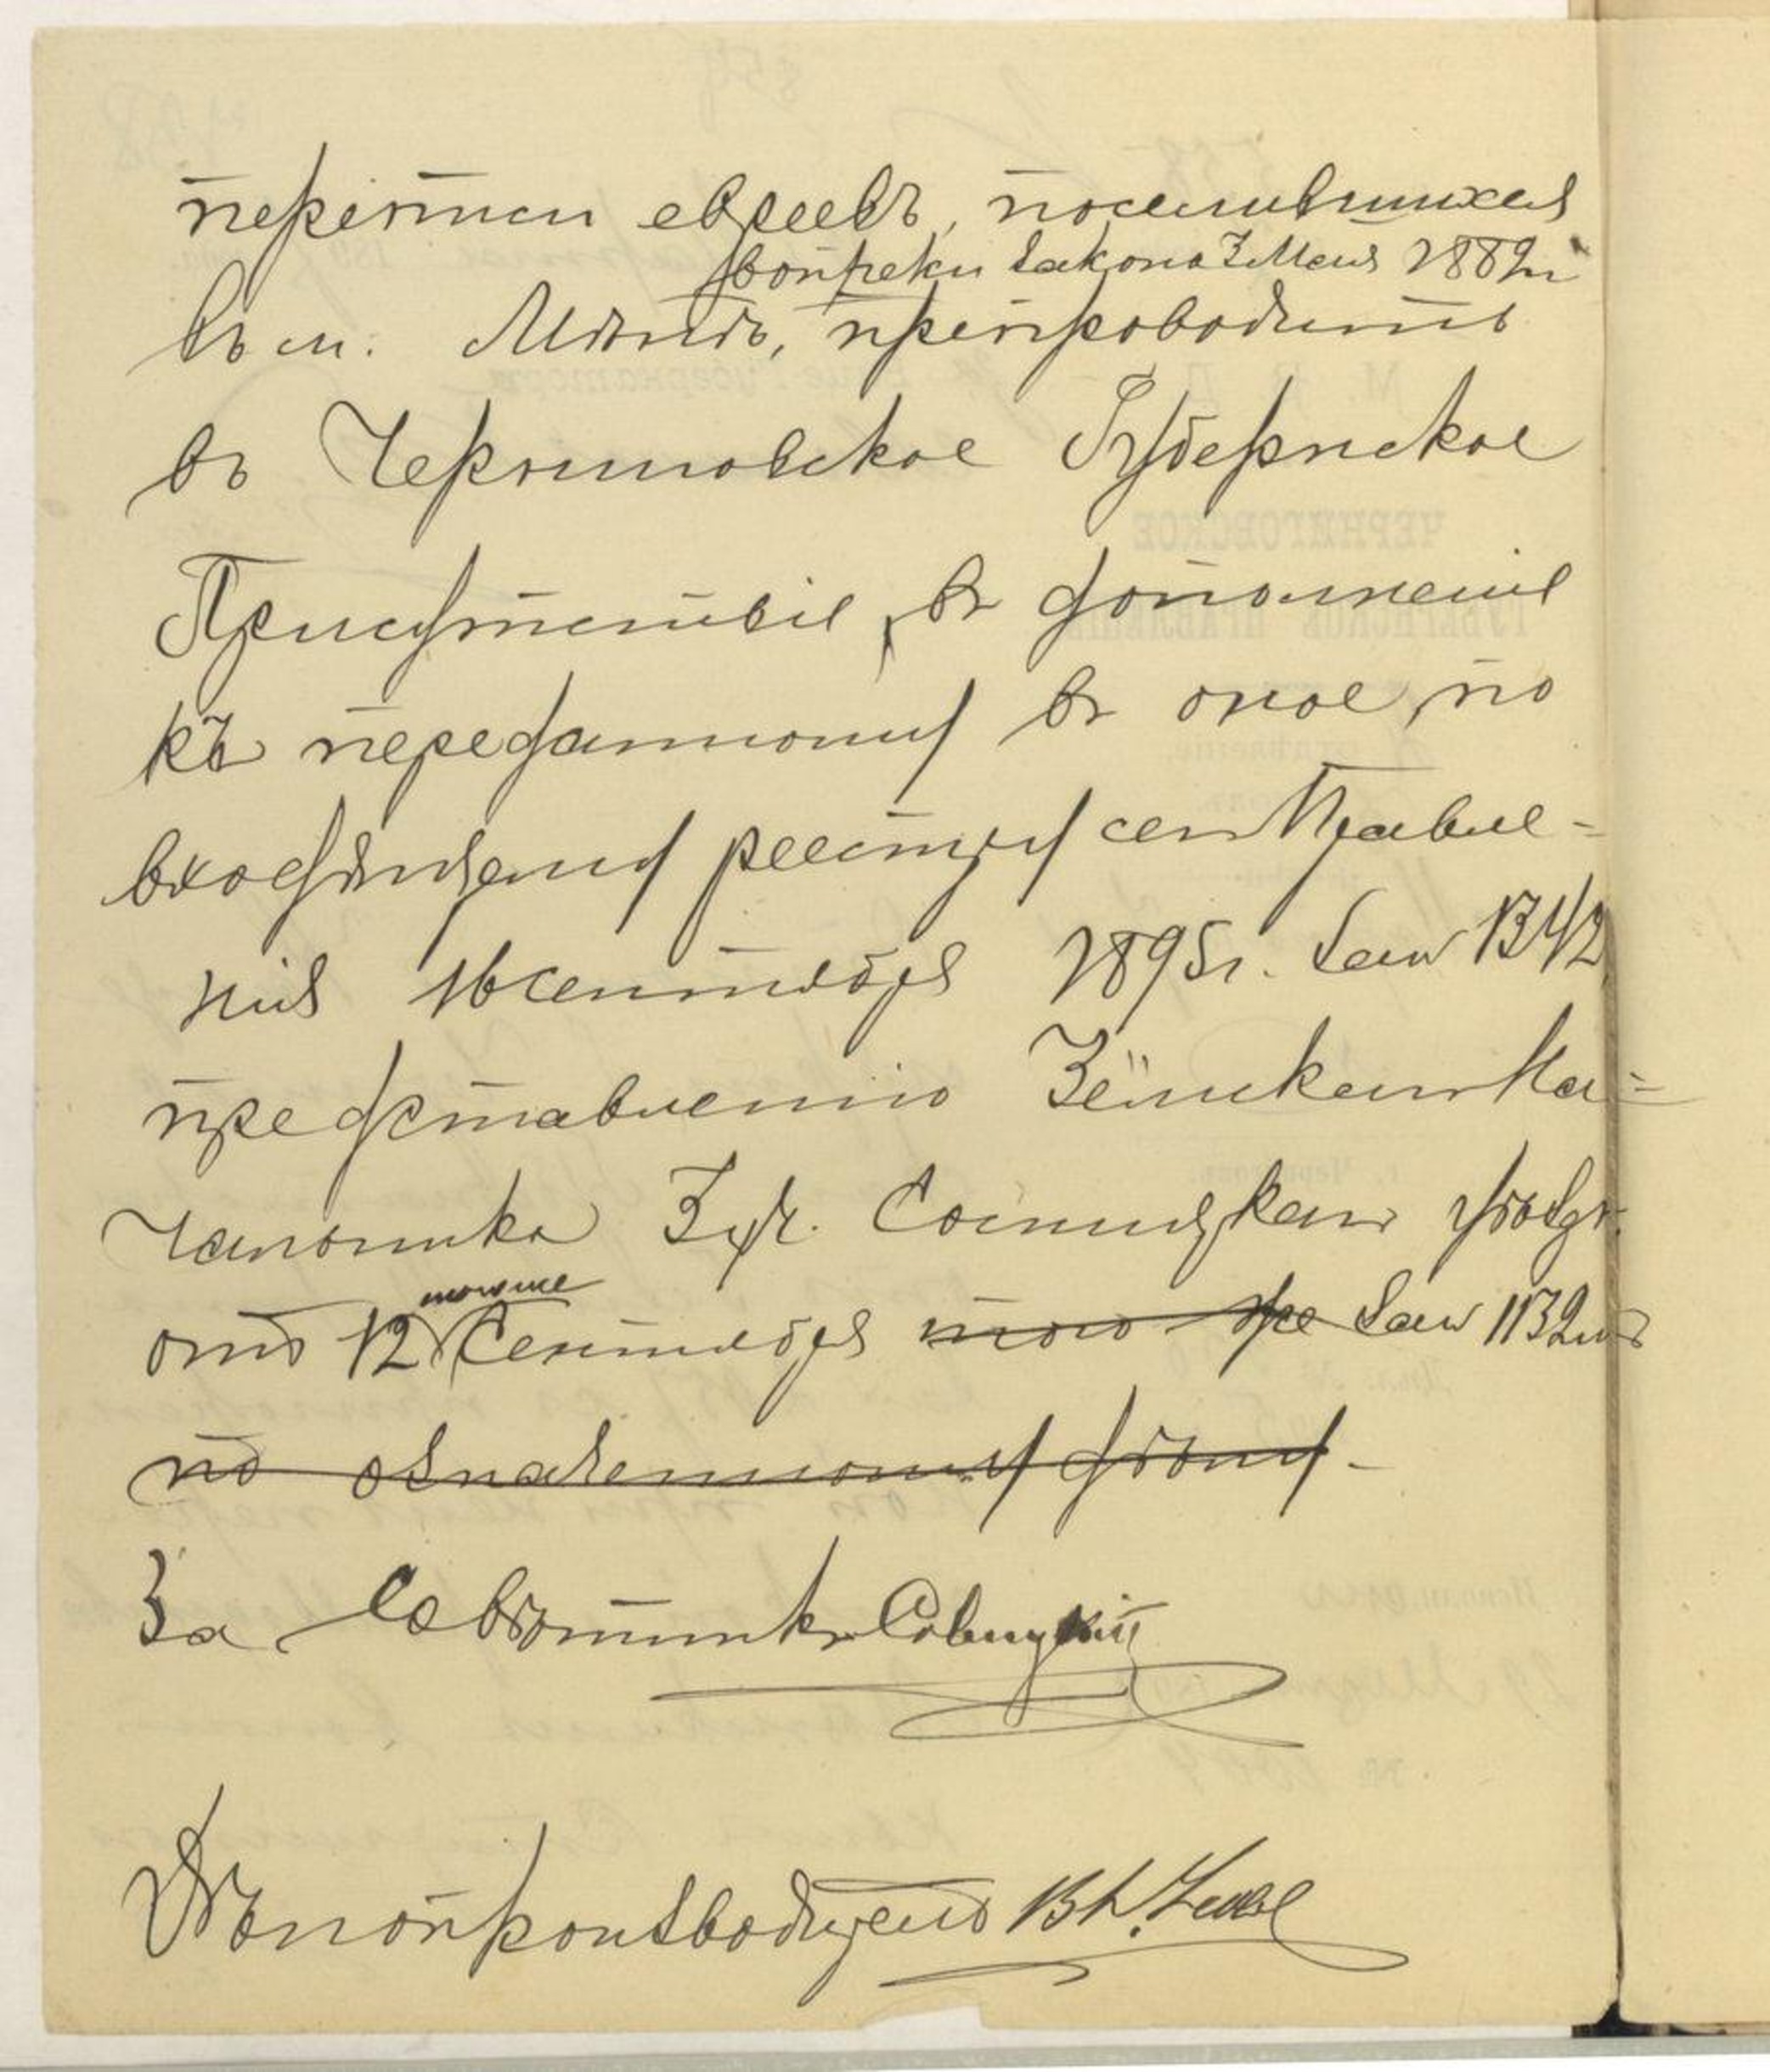 переписи евреевъ, поселившихся
вопреки закона 3 Мая 1882 г
въ м. Мѣнѣ, препроводить
въ Черниговское Губернское
Присутствіе, въ дополненіе
къ переданному въ оное, по
входящему реестру сего Правле=
нія 16 сентября 1895 г. за № 1342
представленію Земскаго На=
чальника 3 уч. Сосницкаго уѣзда
тогоже
отъ 12 Сентября того же за № 1132
по означенному дѣлу.
За Совѣтника Савицкій
Дѣлопроизводитель Вл.